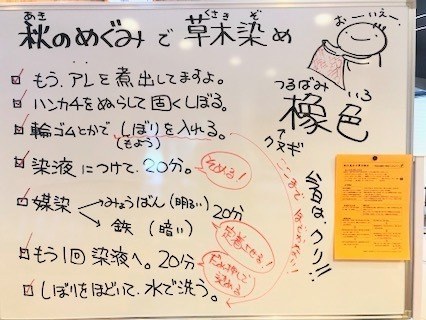 秋のめぐみで草木染め
あき
くさき ぞ
おーいえー。
もう、アレを煮出してますよ。
ハンカチをぬらして固くしぼる。
輪ゴムとかでしぼりを入れる。
(もよう)
染液につけて、20分。
そめる!
媒染→みょうばん(明るい)
→鉄(暗い)
20分
定着させる!
もう1回染液へ。20分
だめ押しで染める!
しぼりをほどいて、水で洗う。
つるばみ いろ
橡色
↑クヌギ
今日は、クリ!!